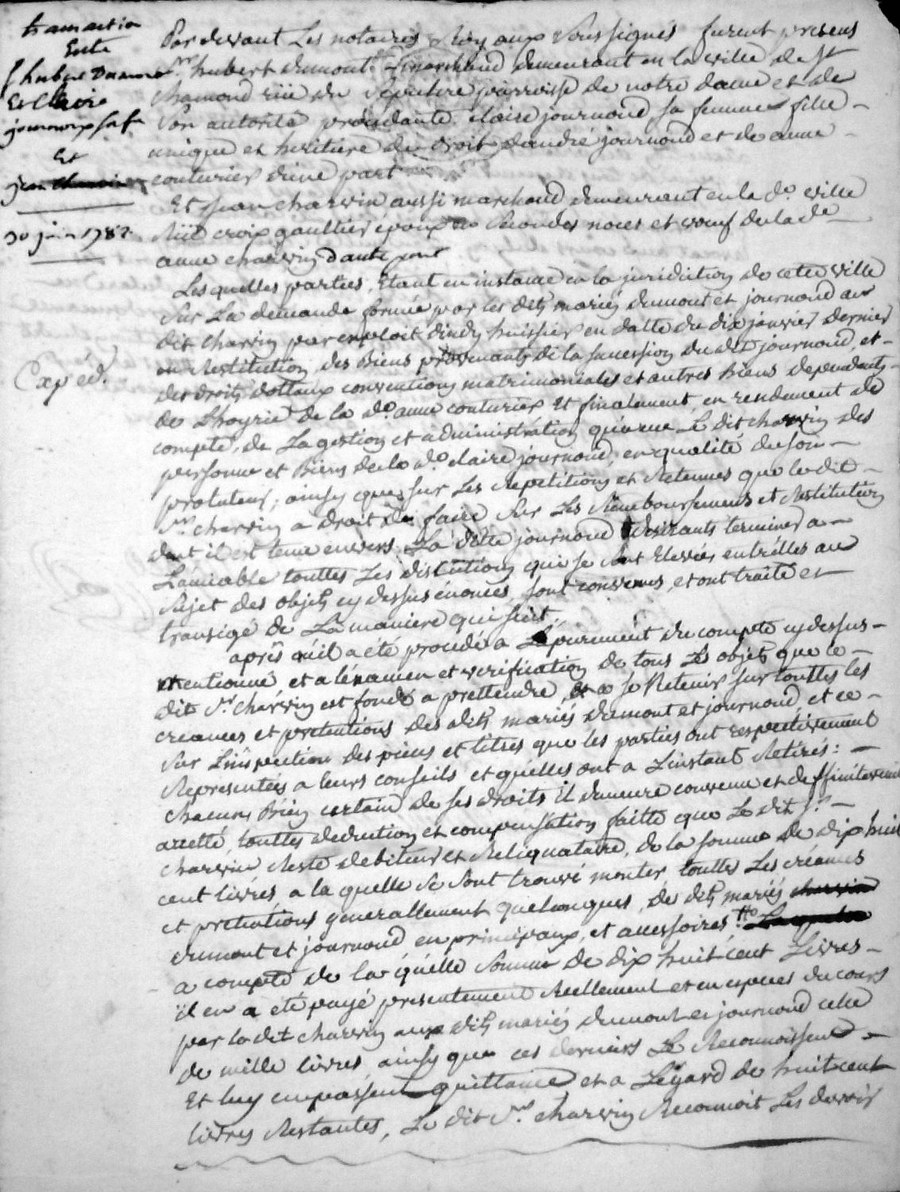 transaction
Entre
Sr hubert Dumont
Et Claire
journoud sa f.
Et
jean charvin
30 juin 1782
Expéd.
Par devant Les notaires Royaux soussignés furent presens
Sr. hubert dumont marchand demeurant en la ville de St
chamond rüe du sepulcre parroisse de notre dame et de
son autorité procédante claire journoud sa femme fille
unique et heritiere de droit d'andré journoud et de anne
couturier d'une part
Et jean charvin aussi marchand demeurant en la de. ville
rüe croix gaultier époux en secondes noces et veuf de la de.
anne charvin d'autre part
Lesquelles parties, Etant en instance en la juridiction de cette ville
sur La demande formée par les dits mariés dumont et journoud au
dit charvin par exploit d'indy huissier en datte du dix janvier dernier
en Restitution des Biens provenants de la succession du dit journoud, et
des droits dottaux conventions matrimoniales et autres Biens dependants
de L'hoyrie de la de. anne couturier Et finalement en rendement de
compte, de La gestion et administration qu'a eue Le dit charvin des
personne et Biens de la de. claire journoud, en qualité de son
protuteur; ainsy que sur Les Repetitions et Retenues que le dit
Sr. charvin a droit de faire sur Les Remboursements et Restitution
dont il est tenu envers La dette journoud desirants terminer a
L'amiable touttes Les distentions qui se sont Elevées entr'elles au
sujet des objets cy dessus énoncés, sont convenus, et ont traité et
transigé de La maniere qui suit
après qu'il a été procédé a L'épurement du compte cy dessus
mentionné et a l'éxamen et verification de tous Les objets que le
dit Sr. charvin est fondé a prettendre, et a se Retenir sur touttes les
creances et pretentions des dits mariés dumont et journoud, et ce
sur L'inspection des pieces et titres que les parties ont respectivement
Representés a leurs conseils et qu'elles ont a L'instant Retirés:
chacune Bien certain de ses droits il demeure convenu et deffinitivement
arretté, touttes deduction et compensation faitte que Le dit Sr.
charvin Reste debiteur et Reliquataire, de la somme de dix huit
cent livres, a la quelle se sont trouvé monter touttes Les créances
et pretentions generallement quelconques, de dits mariés charvin
dumont et journoud en principaux, et accessoires,
a compte de la quélle somme de dix huit cent Livres
il en a été payé presentement Réellement et en especes du cours
par le dit charvin aux dits mariés dumont et journoud celle
de mille livres, ainsy que ces derniers Le Reconnoissent
Et luy en passent quittance et a L'égard de huit cent
livres Restantes, Le dit Sr. charvin Reconnoit Les devoir